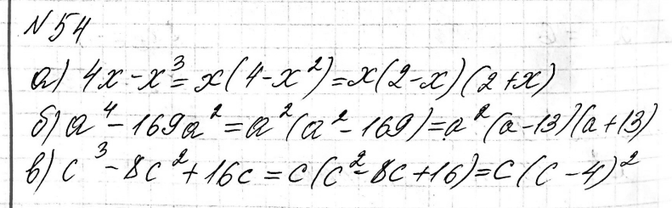 №54
а) 4x - x³ = x(4 - x²) = x(2 - x)(2 + x)
б) a⁴ - 169a² = a²(a² - 169) = a²(a - 13)(a + 13)
в) c³ - 8c² + 16c = c(c² - 8c + 16) = c(c - 4)²